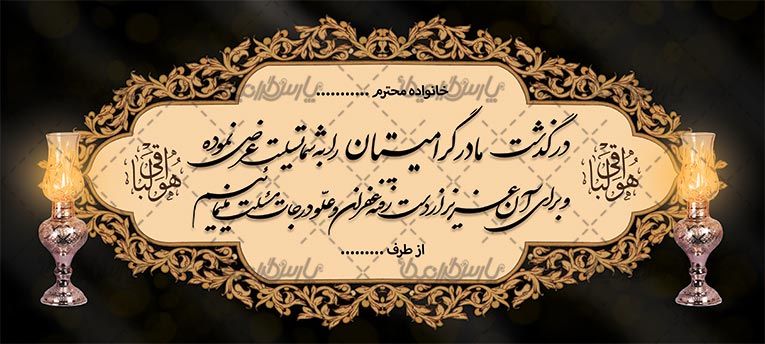 خانواده محترم ...........
درگذشت مادر گرامیتان را به شما تسلیت عرض نموده
هو الباقی
هو الباقی
و برای آن عزیز از دست رفته غفران و علو درجات مسئلت مینمائیم
از طرف .........